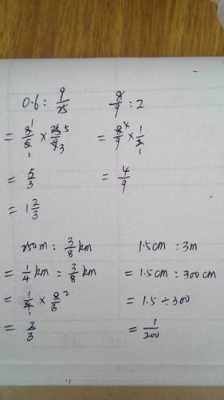 0.6 : 9/25
= 3/5 × 25/9
= 5/3
= 1 2/3
8/9 : 2
= 8/9 × 1/2
= 4/9
250m : 3/8 km
= 1/4 km : 3/8 km
= 1/4 × 8/3
= 2/3
1.5cm : 3m
= 1.5cm : 300cm
= 1.5 ÷ 300
= 1/200